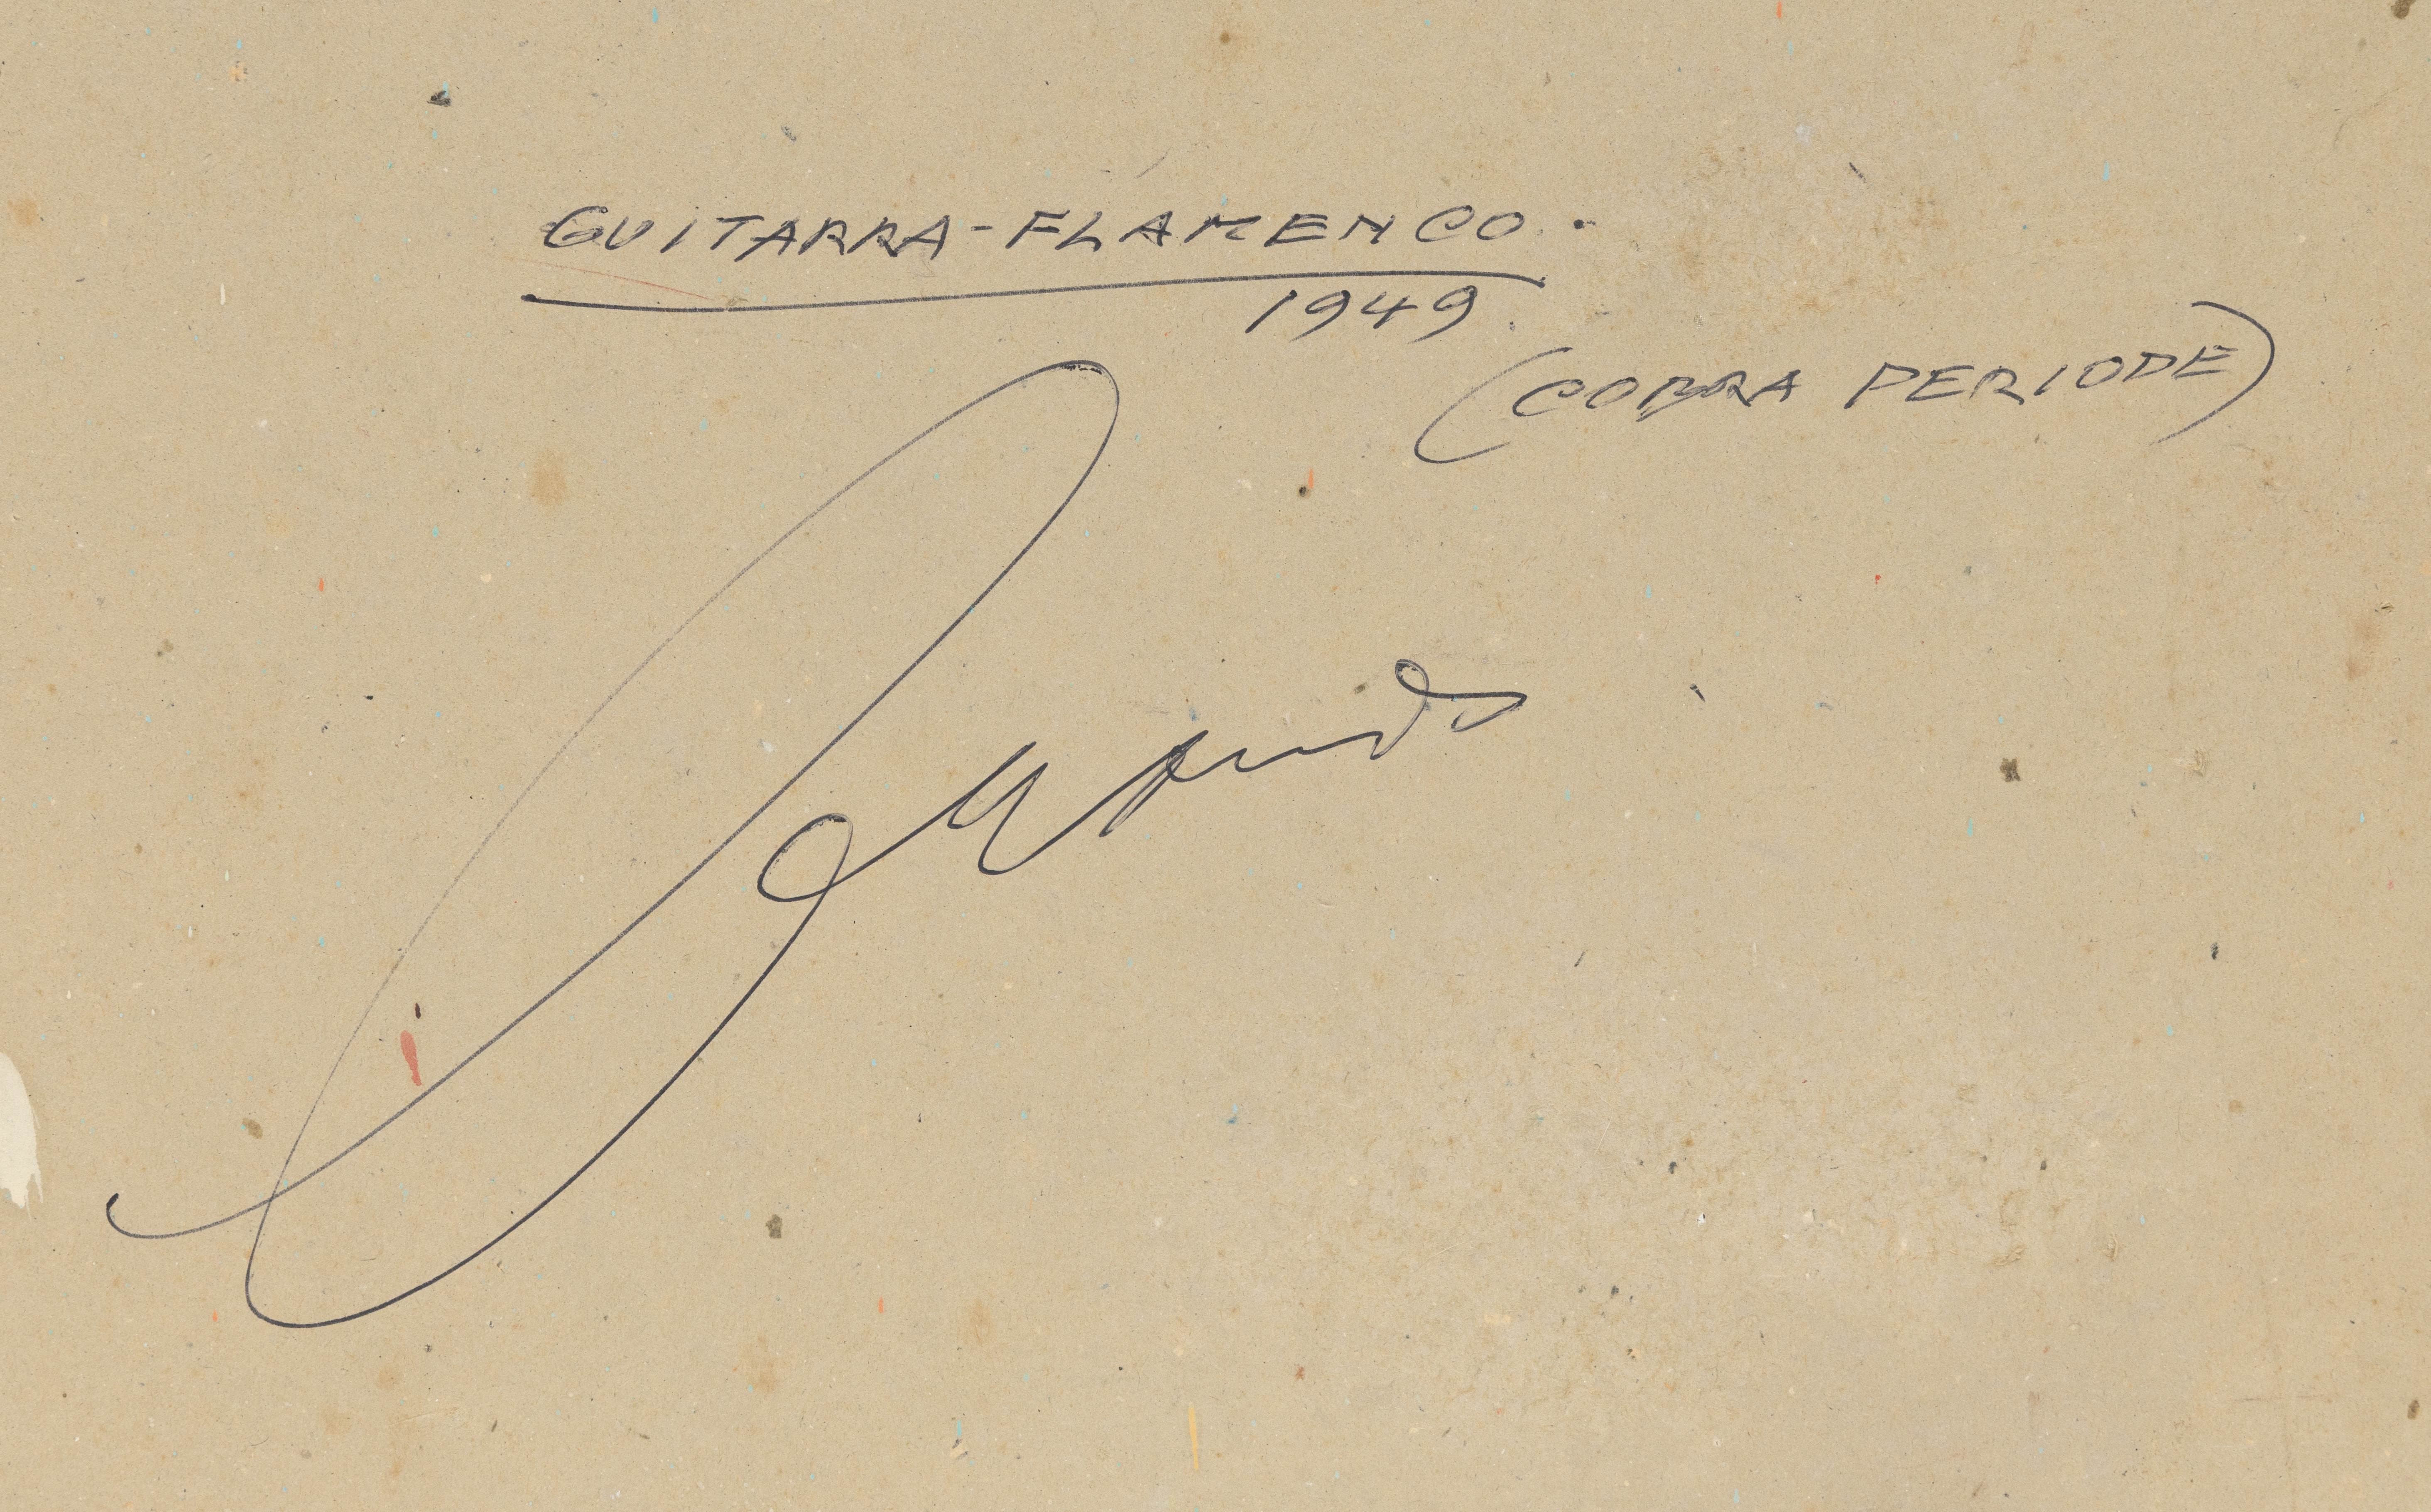 GUITARRA-FLAMENCO.
1949.
(COBRA PERIODE)